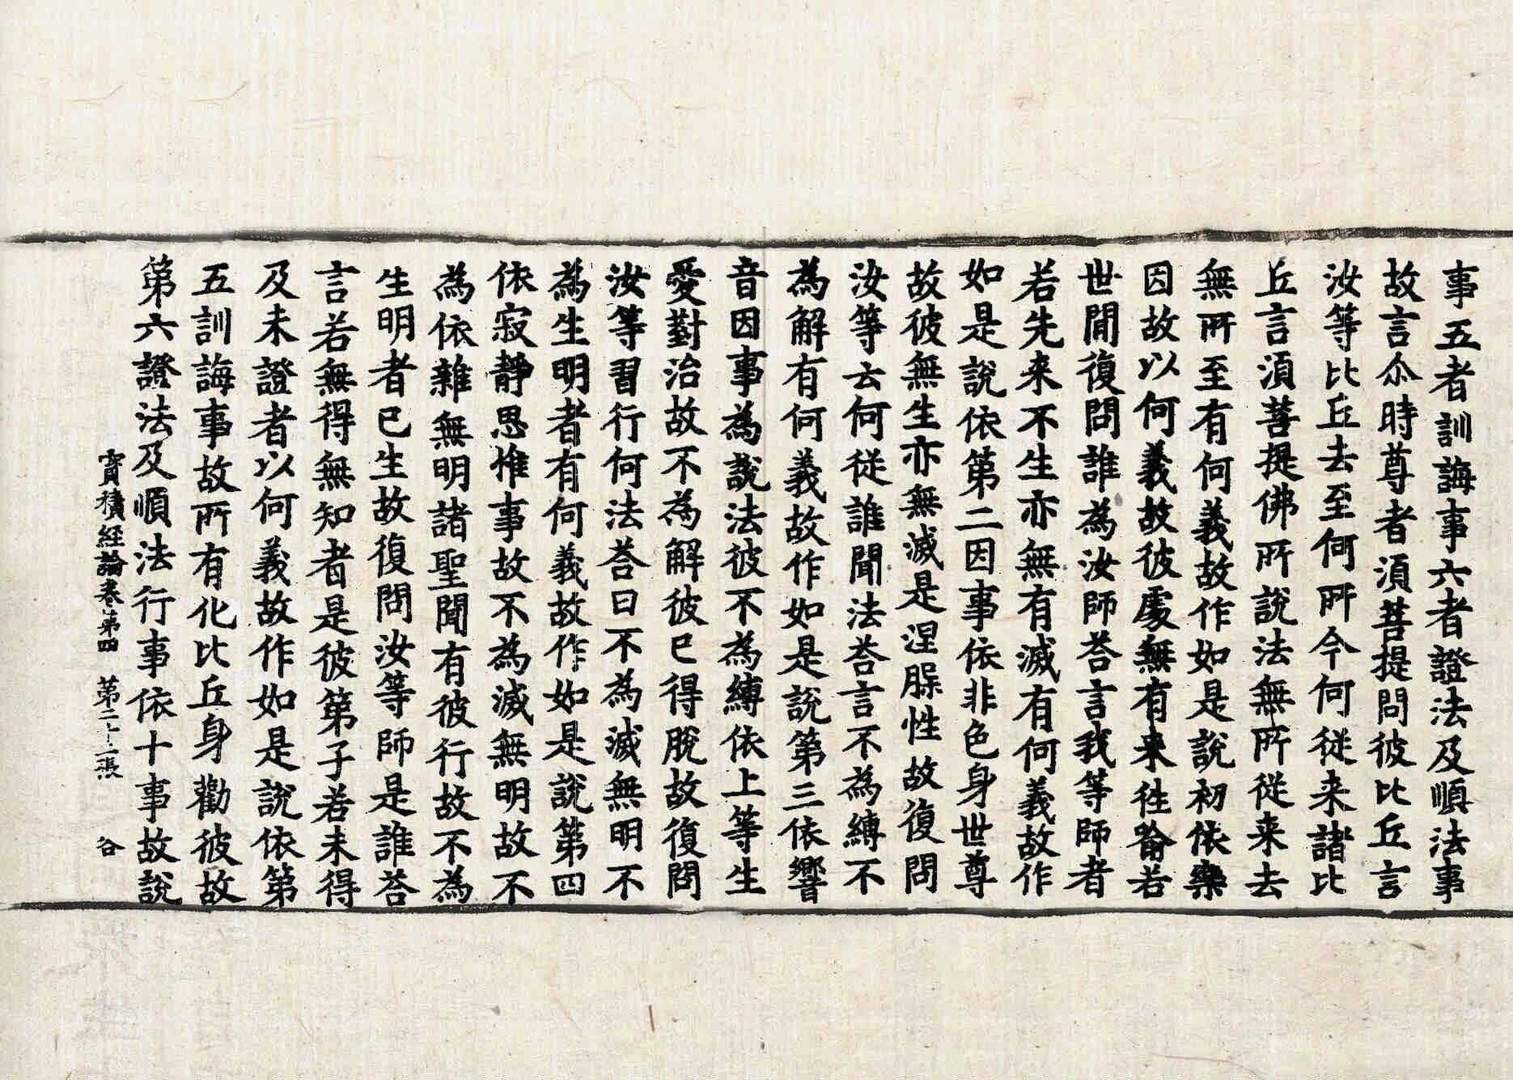 事五者訓誨事六者證法及順法事
故言尒時尊者湏菩提問彼比丘言
汝等比丘去至何所今何従来諸比
丘言湏菩提佛所說法無所従来去
無所至有何義故作如是說初依樂
因故以何義故彼處無有来徃喻若
世間復問誰為汝師荅言我等師者
若先来不生亦無有滅有何義故作
如是說依第二因事依非色身世尊
故彼無生亦無滅是涅槃性故復問
汝等云何従誰聞法荅言不為縛不
為解有何義故作如是說第三依響
音因事為說法彼不為縛依上等生
愛對治故不為解彼已得脫故復問
汝等習行何法荅曰不為滅無明不
為生明者有何義故作如是說第四
依寂靜思惟事故不為滅無明故不
為依雜無明諸聖聞有彼行故不為
生明者已生故復問汝等師是誰荅
言若無得無知者是彼第子若未得
及未證者以何義故作如是說依第
五訓誨事故所有化比丘身勸彼故
第六證法及順法行事依十事故說
寶積經論卷第四 第二十二張 谷